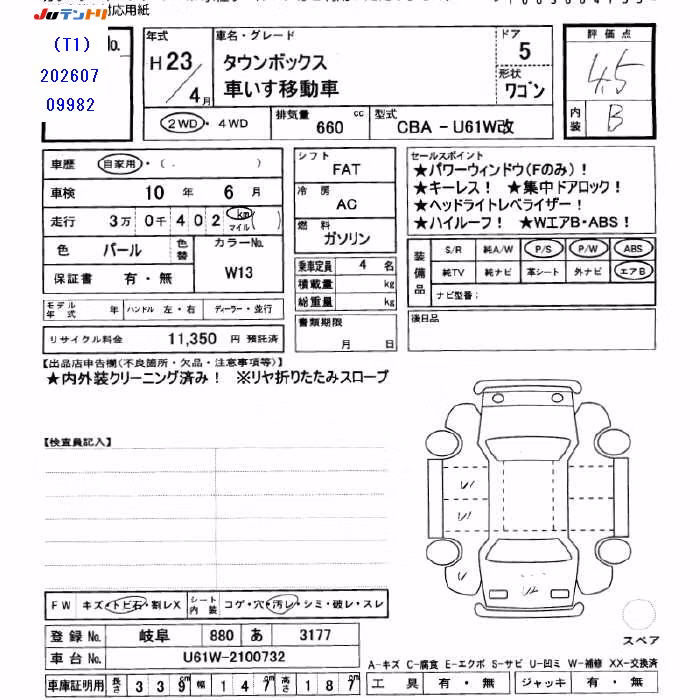 JUテントリ 応用紙
(T1)
202607
09982
No.
年式 H23/4月
車名・グレード タウンボックス
車いす移動車
ドア 5
形状 ワゴン
評価点 4.5
内装 B
2WD・4WD
排気量 660 cc
型式 CBA - U61W改
車歴 自家用・( . )
車検 10年 6月
走行 3万0千402 km マイル( )
色 パール 色替
カラーNo. W13
保証書 有・無
シフト FAT
冷房 AC
燃料 ガソリン
乗車定員 4名
積載量 kg
総重量 kg
書類期限 月 日
セールスポイント
★パワーウィンドウ(Fのみ)!
★キーレス! ★集中ドアロック!
★ヘッドライトレベライザー!
★ハイルーフ! ★WエアB・ABS!
装備品 S/R 純A/W P/S P/W ABS
純TV 純ナビ 革シート 外ナビ エアB
ナビ型番;
後日品
モデル年式 年 ハンドル 左・右 ディーラー・並行
リサイクル料金 11,350 円 預託済
【出品店申告欄(不良箇所・欠品・注意事項等)】
★内外装クリーニング済み! ※リヤ折りたたみスロープ
【検査員記入】
FW キズ・トビ石・割レX シート内装 コゲ・穴・汚レ・シミ・破レ・スレ
登録No. 岐阜 880 あ 3177
車台No. U61W-2100732
車庫証明用 長さ 339cm 幅 147cm 高さ 187cm
スペア
A-キズ C-腐食 E-エクボ S-サビ U-凹ミ W-補修 XX-交換済
工具 有・無 ジャッキ 有・無